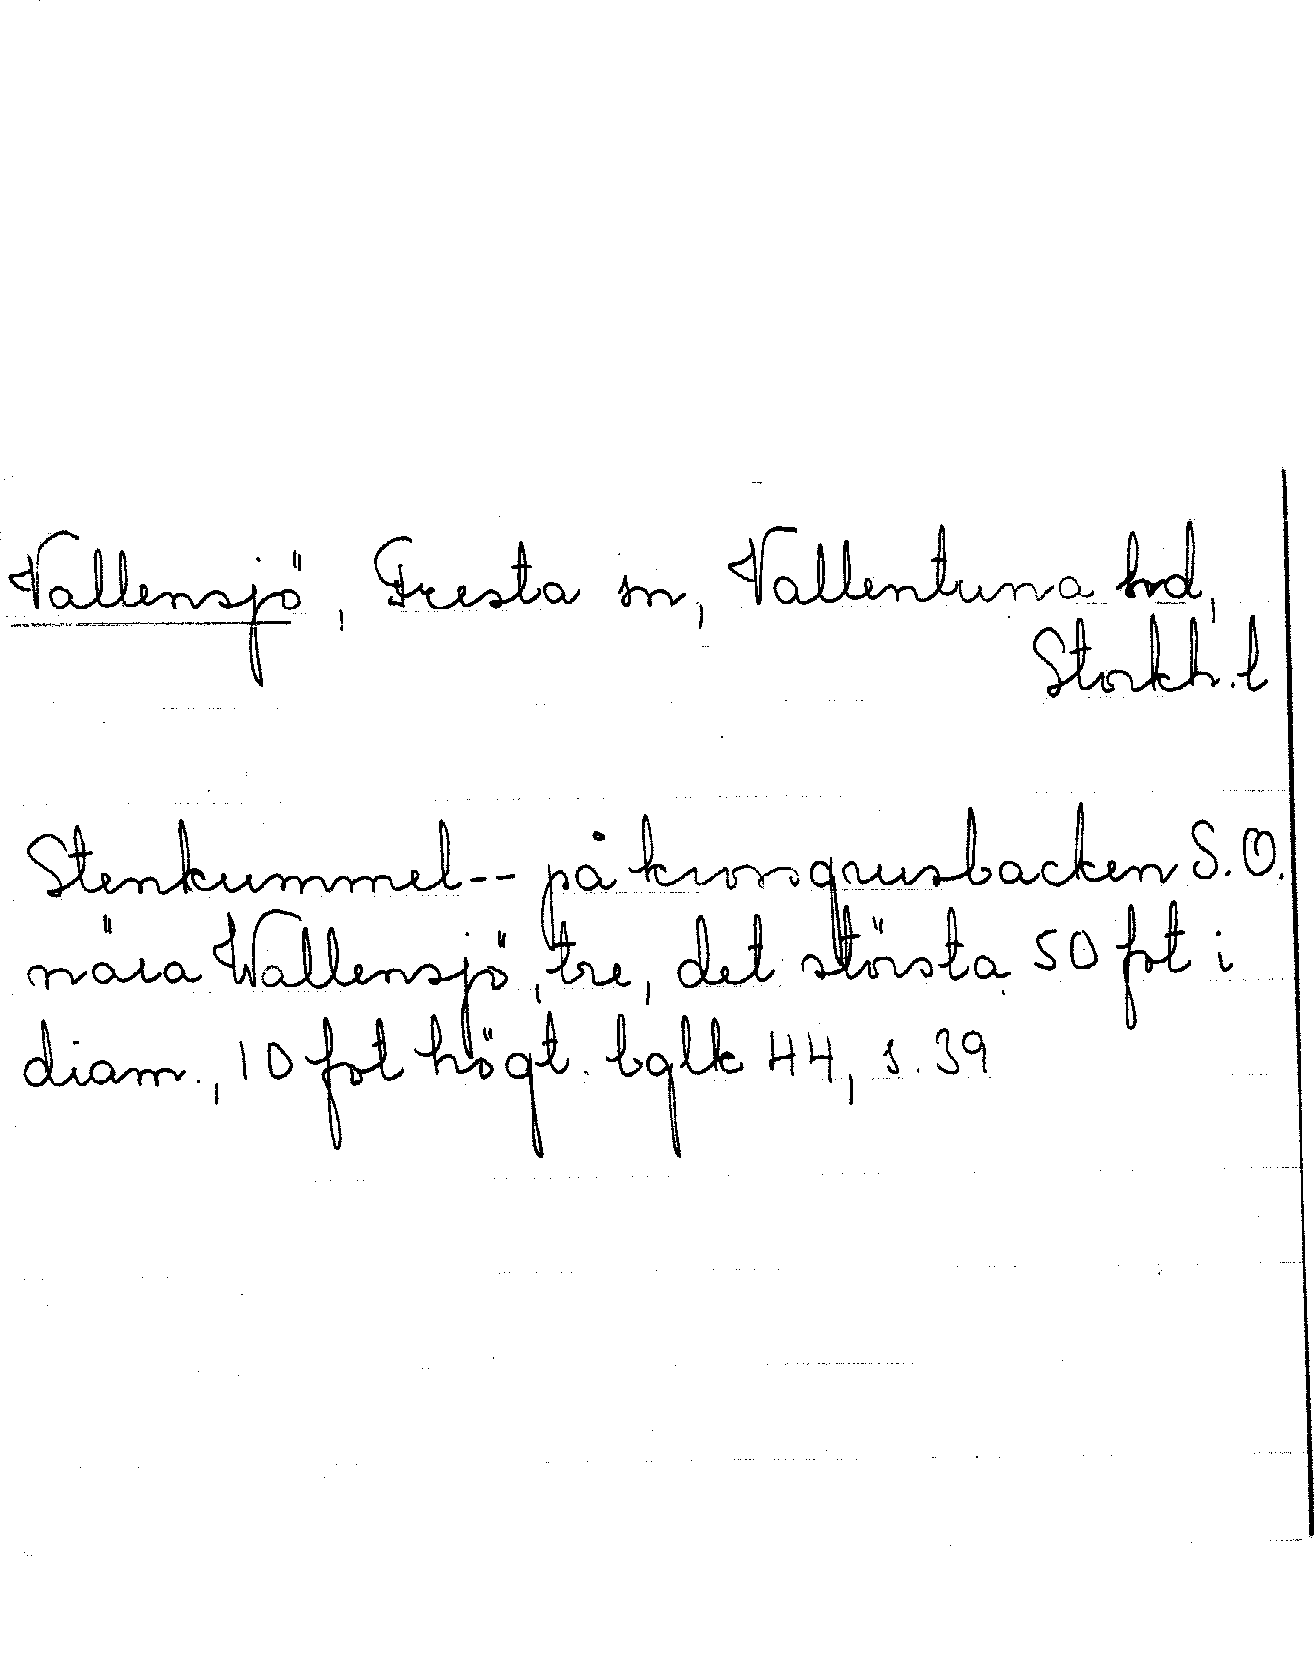 Vallensjö, Fresta sn, Vallentuna hd,
Stockh. l
Stenkummel -- på krossgrusbacken S.O.
nära Wallensjö, tre, det största 50 fot i
diam., 10 fot högt. bglk 44, s. 39